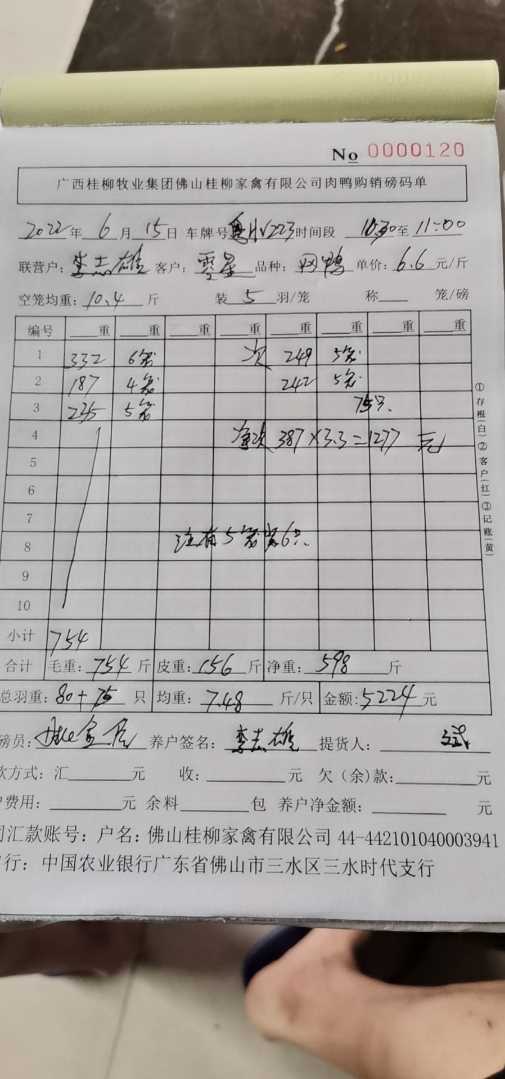 No 0000120
广西桂柳牧业集团佛山桂柳家禽有限公司肉鸭购销磅码单
2022年 6 月 15日 车牌号 时间段 10:30至 11:00
联营户: 李志雄 客户: 品种: 鸭 单价: 6.6 元/斤
空笼均重: 10.4 斤 装 5 羽/笼 称 笼/磅
编号 重 重 重 重 重 重 重 重
1 332 6笼 次 249 5笼
2 187 4笼 242 5笼
3 235 5笼 75只
4 净次 387×3.3=1277 元
5
6
7
8 注有5笼装6只
9
10
小计 754
合计 毛重: 754 斤 皮重: 156 斤 净重: 598 斤
总羽重: 80+75 只 均重: 7.48 斤/只 金额: 5224 元
磅员: 养户签名: 李志雄 提货人:
款方式: 汇 元 收: 元 欠(余)款: 元
户费用: 元 余料 包 养户净金额: 元
司汇款账号: 户名: 佛山桂柳家禽有限公司 44-442101040003941
行: 中国农业银行广东省佛山市三水区三水时代支行
①存根(白)②客户(红)③记账(黄)